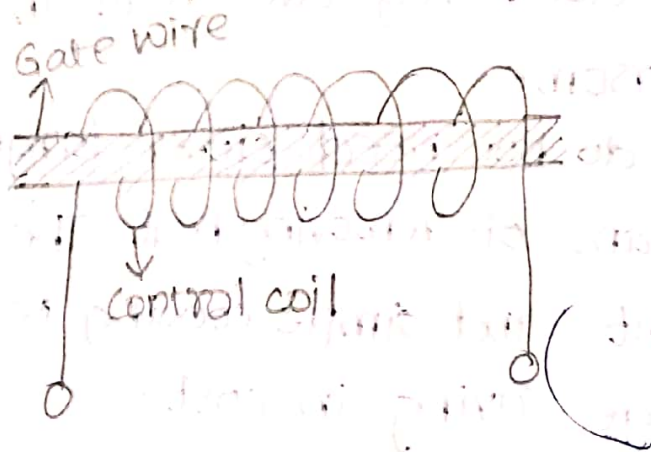 Gate wire
control coil